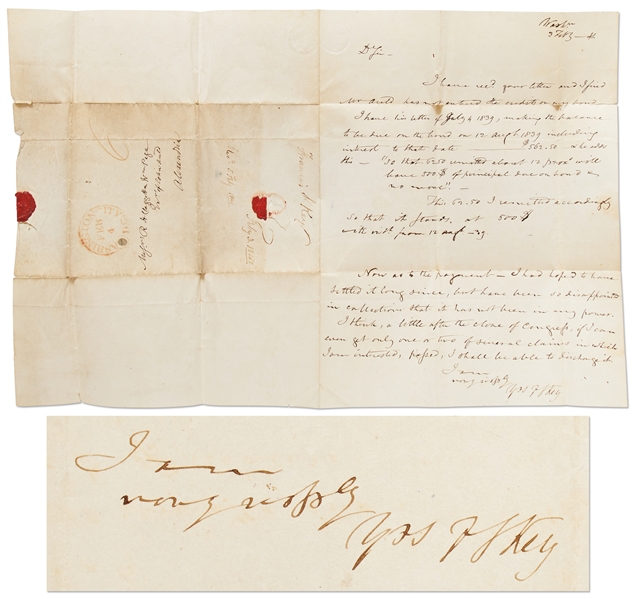 Wash.n
3 Feb - 41.
Dr Sir -
I have rec.d your letter and I find
Mr has not entered the credit on my bond
I have his letter of July 4 1839, making the balance
to be due on the bond on 12 Aug.t 1839 including
interest to that date — $562.50 he adds
this — "So that 62.50 remitted about 12 prox.o will
leave 500$ of principal due on bond &
no more" -
This 62.50 I remitted accordingly
So that it stands at 500$
with int. from 12 Aug.t -39
Now as to the payment — I had hoped to have
settled it long since, but have been so disappointed
in collections that it has not been in my power.
I think, a little after the close of Congress, if I can
even get only one or two of several claims in which
I am interested, passed, I shall be able to discharge it
I am
very resply
Yrs F S Key
Page
Alexandria
Francis S Key
Feb 3. 1841
WASHINGTON CITY
FEB
4
I am
very resply
Yrs F S Key